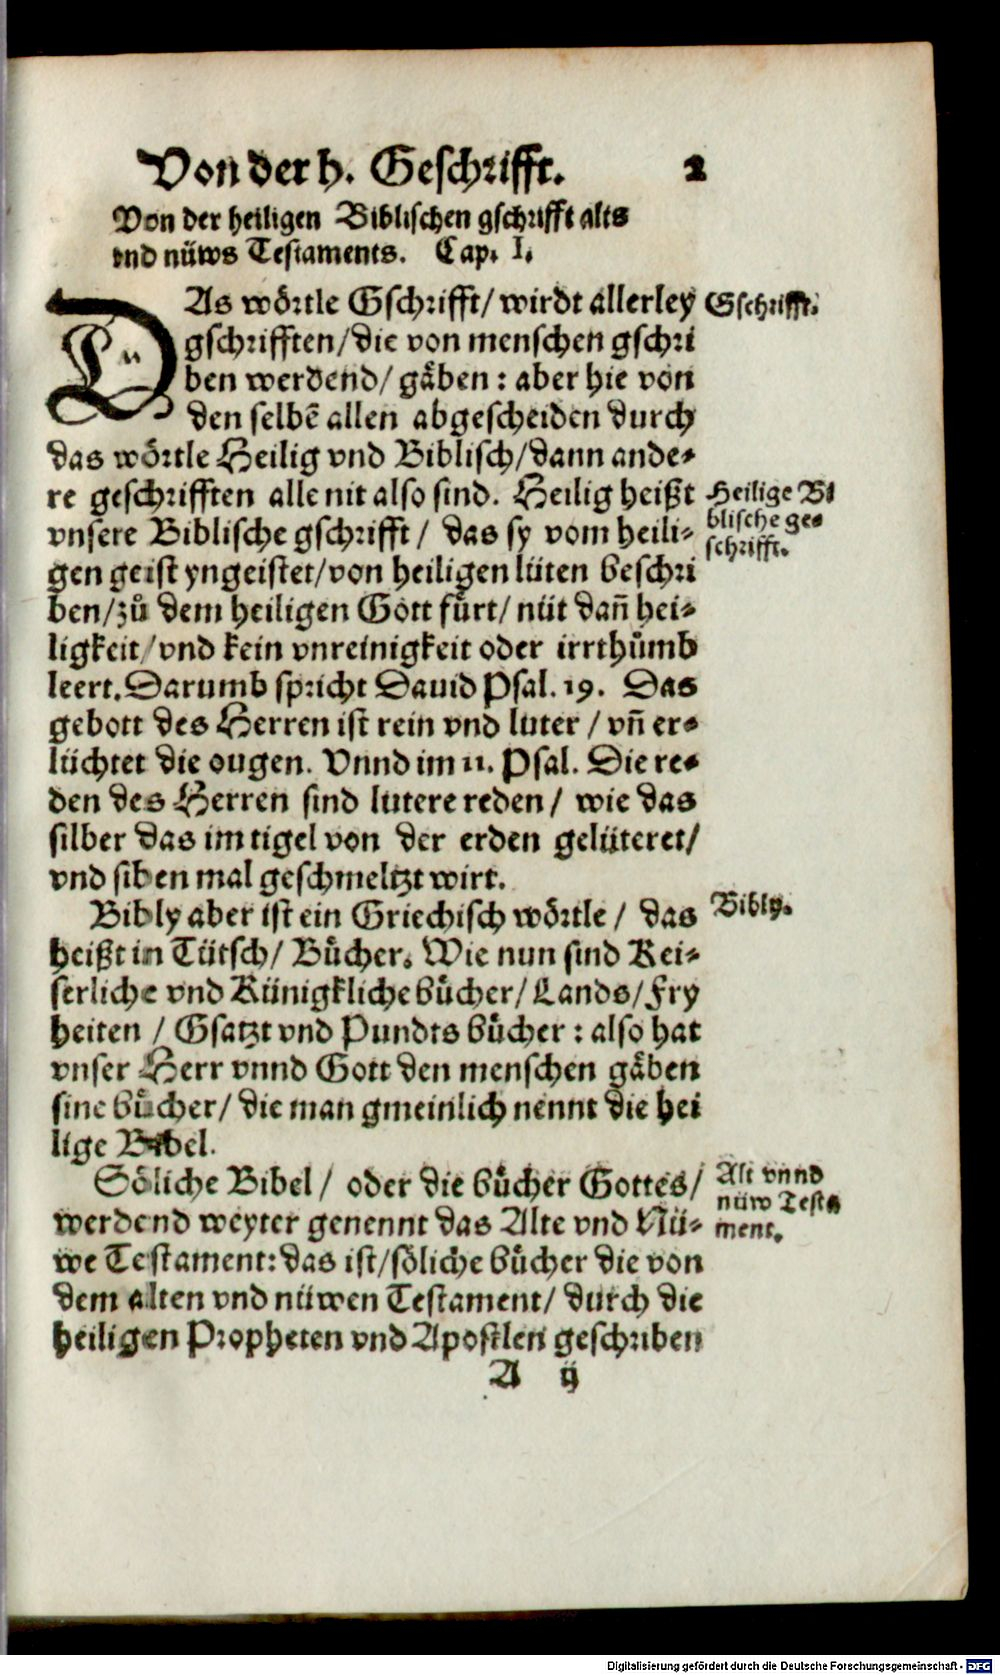 Von der h. Geschrifft. 2
Von der heiligen Biblischen gschrifft alts
vnd nüws Testaments. Cap. I.
DAs wörtle Gschrifft/ wirdt allerley
gschrifften/ die von menschen gschri
ben werdend/ gäben : aber hie von
den selbē allen abgescheiden durch
das wörtle Heilig vnd Biblisch/ dann ande⸗
re geschrifften alle nit also sind. Heilig heißt
vnsere Biblische gschrifft/ das sy vom heili⸗
gen geist yngeistet/ von heiligen lüten beschri
ben/ zů dem heiligen Gott fürt/ nüt dañ hei⸗
ligkeit/ vnd kein vnreinigkeit oder irrthůmb
leert. Darumb spricht Dauid Psal. 19. Das
gebott des Herren ist rein vnd luter / vñ er⸗
lüchtet die ougen. Vnnd im 11. Psal. Die re⸗
den des Herren sind lutere reden/ wie das
silber das im tigel von der erden gelüteret/
vnd siben mal geschmeltzt wirt.
Bibly aber ist ein Griechisch wörtle / das
heißt in Tütsch/ Bücher. Wie nun sind Kei⸗
serliche vnd Künigkliche bücher/ Lands/ Fry
heiten / Gsatzt vnd Pundts bücher : also hat
vnser Herr vnnd Gott den menschen gäben
sine bücher/ die man gmeinlich nennt die hei
lige Bibel.
Söliche Bibel / oder die bücher Gottes/
werdend weyter genennt das Alte vnd Nü⸗
we Testament: das ist/ söliche bücher die von
dem alten vnd nüwen Testament/ durch die
heiligen Propheten vnd Apostlen geschriben
A ij
Gschrifft.
Heilige Bi
blische ge⸗
schrifft.
Bibly.
Alt vnnd
nüw Testa
ment.
Digitalisierung gefördert durch die Deutsche Forschungsgemeinschaft - DFG